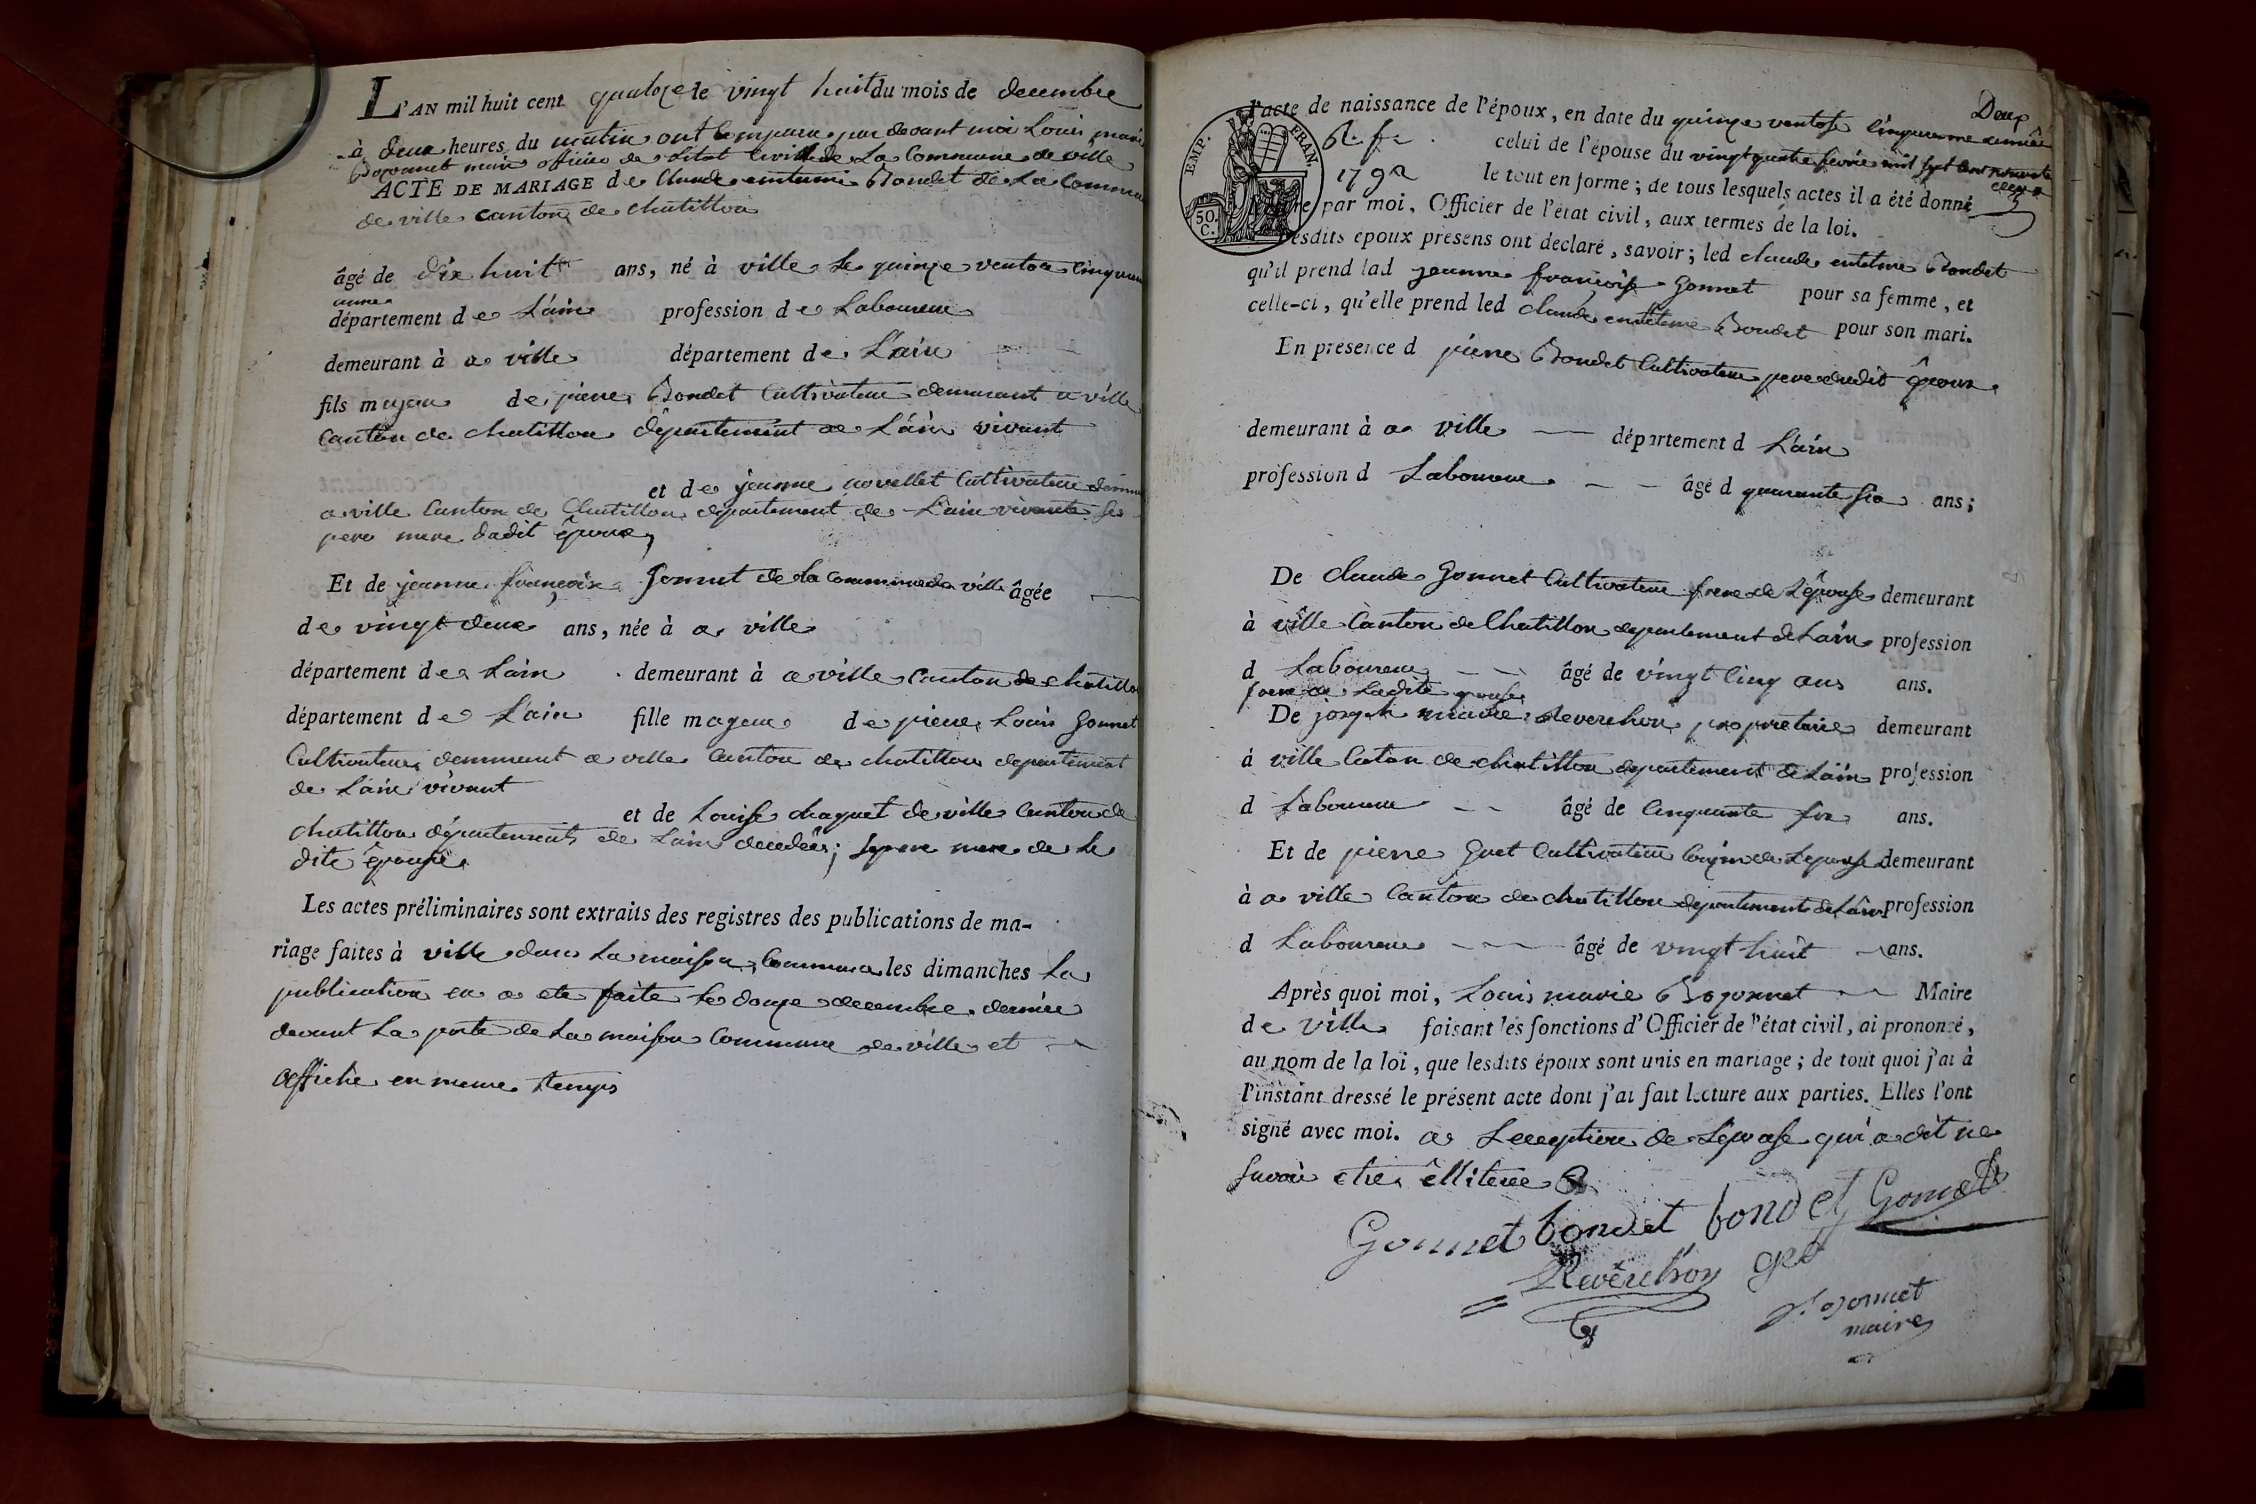 L'AN mil huit cent quatoze le vingt huit du mois de decembre
à deux heures du matin ont comparu par devant moi Louis marie
Bogonnet maire officier de l'etat civil de La Commune de ville
ACTE DE MARIAGE de Claude entelme Bondet de La Commune
de ville canton de chatillon
âgé de dix huit ans, né à ville le quinze ventose cinquieme
annee
département de L'ain profession de Laboureur
demeurant à a ville département de L'ain
fils majeur de pierre Bondet Cultivateur demeurant a ville
Canton de chatillon département de L'ain vivant
et de jeanne novellet Cultivateur
a ville Canton de Chatillon departement de L'ain vivante
pere mere dudit époux
Et de jeanne françoise Gonnet de la commune de ville âgée
de vingt deux ans, née à a ville
département de Lain demeurant à a ville canton de chatillon
département de L'ain fille mageure de pierre Louis Gonnet
Cultivateur demeurant a ville Canton de chatillon departement
de L'ain vivant
et de Louise chaguet de ville Canton de
chatillon département de L'ain decedée; pere mere de la
dite épouse
Les actes préliminaires sont extraits des registres des publications de ma-
riage faites à ville dans La maison Commune les dimanches La
publication en a ete faite le douze decembre dernier
devant La porte de La maison Commune de ville et
affiche en meme temps
Deux
l'acte de naissance de l'époux, en date du quinze ventose cinquieme année
celui de l'épouse du vingt quatre fevrier mil sept cent nonante
deux
1792 le tout en forme; de tous lesquels actes il a été donné
par moi, Officier de l'état civil, aux termes de la loi.
TEMP. FRAN.
50.
C.
Lesdits epoux présens ont déclaré, savoir; led claude entelme Bondet
qu'il prend lad jeanne françoise Gonnet pour sa femme, et
celle-ci, qu'elle prend led claude entelme Bondet pour son mari.
En présence d pierre Bondet Cultivateur pere dudit époux
demeurant à a ville département d L'ain
profession d Laboureur âgé d quarante six ans;
De claude Gonnet Cultivateur frere de L'épouse demeurant
à ville Canton de Chatillon departement de Lain profession
d Laboureur âgé de vingt cinq ans ans.
frere de Ladite epouse
De joseph marie Reverchon proprietaire demeurant
à ville Caton de chatillon departement de L'ain profession
d Laboureur âgé de Cinquante six ans.
Et de pierre Guet Cultivateur Cousin de Lepouse demeurant
à a ville Canton de chatillon departement de L'ain profession
d Laboureur âgé de vingt huit ans.
Après quoi moi, Louis marie Bogonnet Maire
de ville faisant les fonctions d'Officier de l'état civil, ai prononcé,
au nom de la loi, que lesdits époux sont unis en mariage; de tout quoi j'ai à
l'instant dressé le présent acte dont j'ai fait lecture aux parties. Elles l'ont
signé avec moi. a L'exeption de L'epouse qui a dit ne
savoir etre
Gonnet bondet bondet Gonnet
Reverchon get
maire